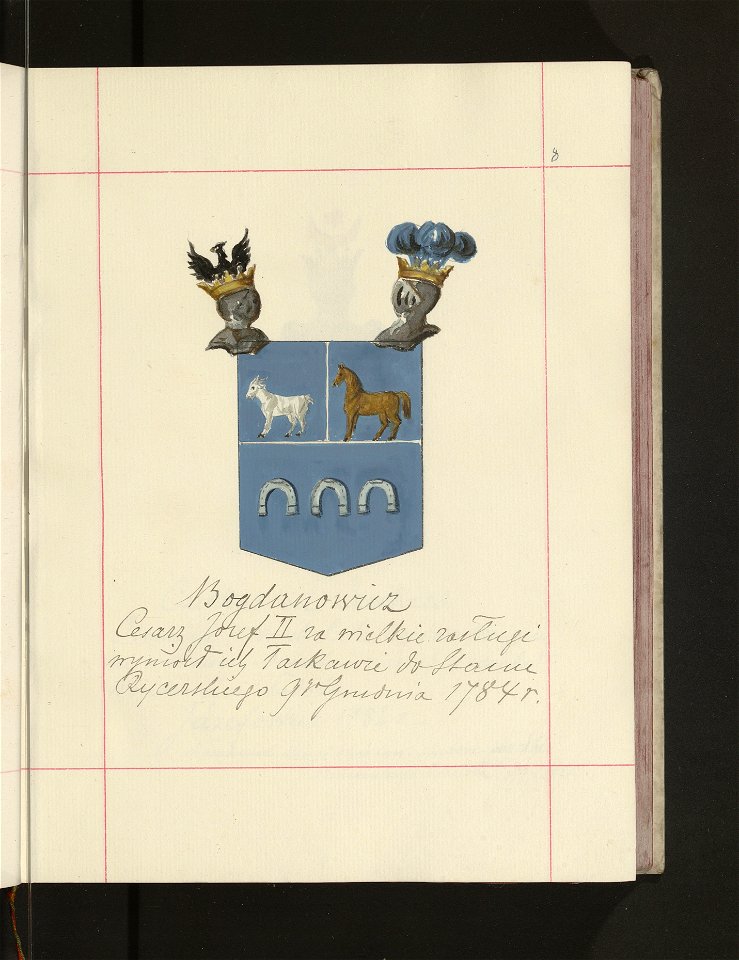 8
Bogdanowicz
Cesarz Józef II za wielkie zasługi
wyniosł ich łaskawie do Stanu
Rycerskiego 9go Grudnia 1784 r.